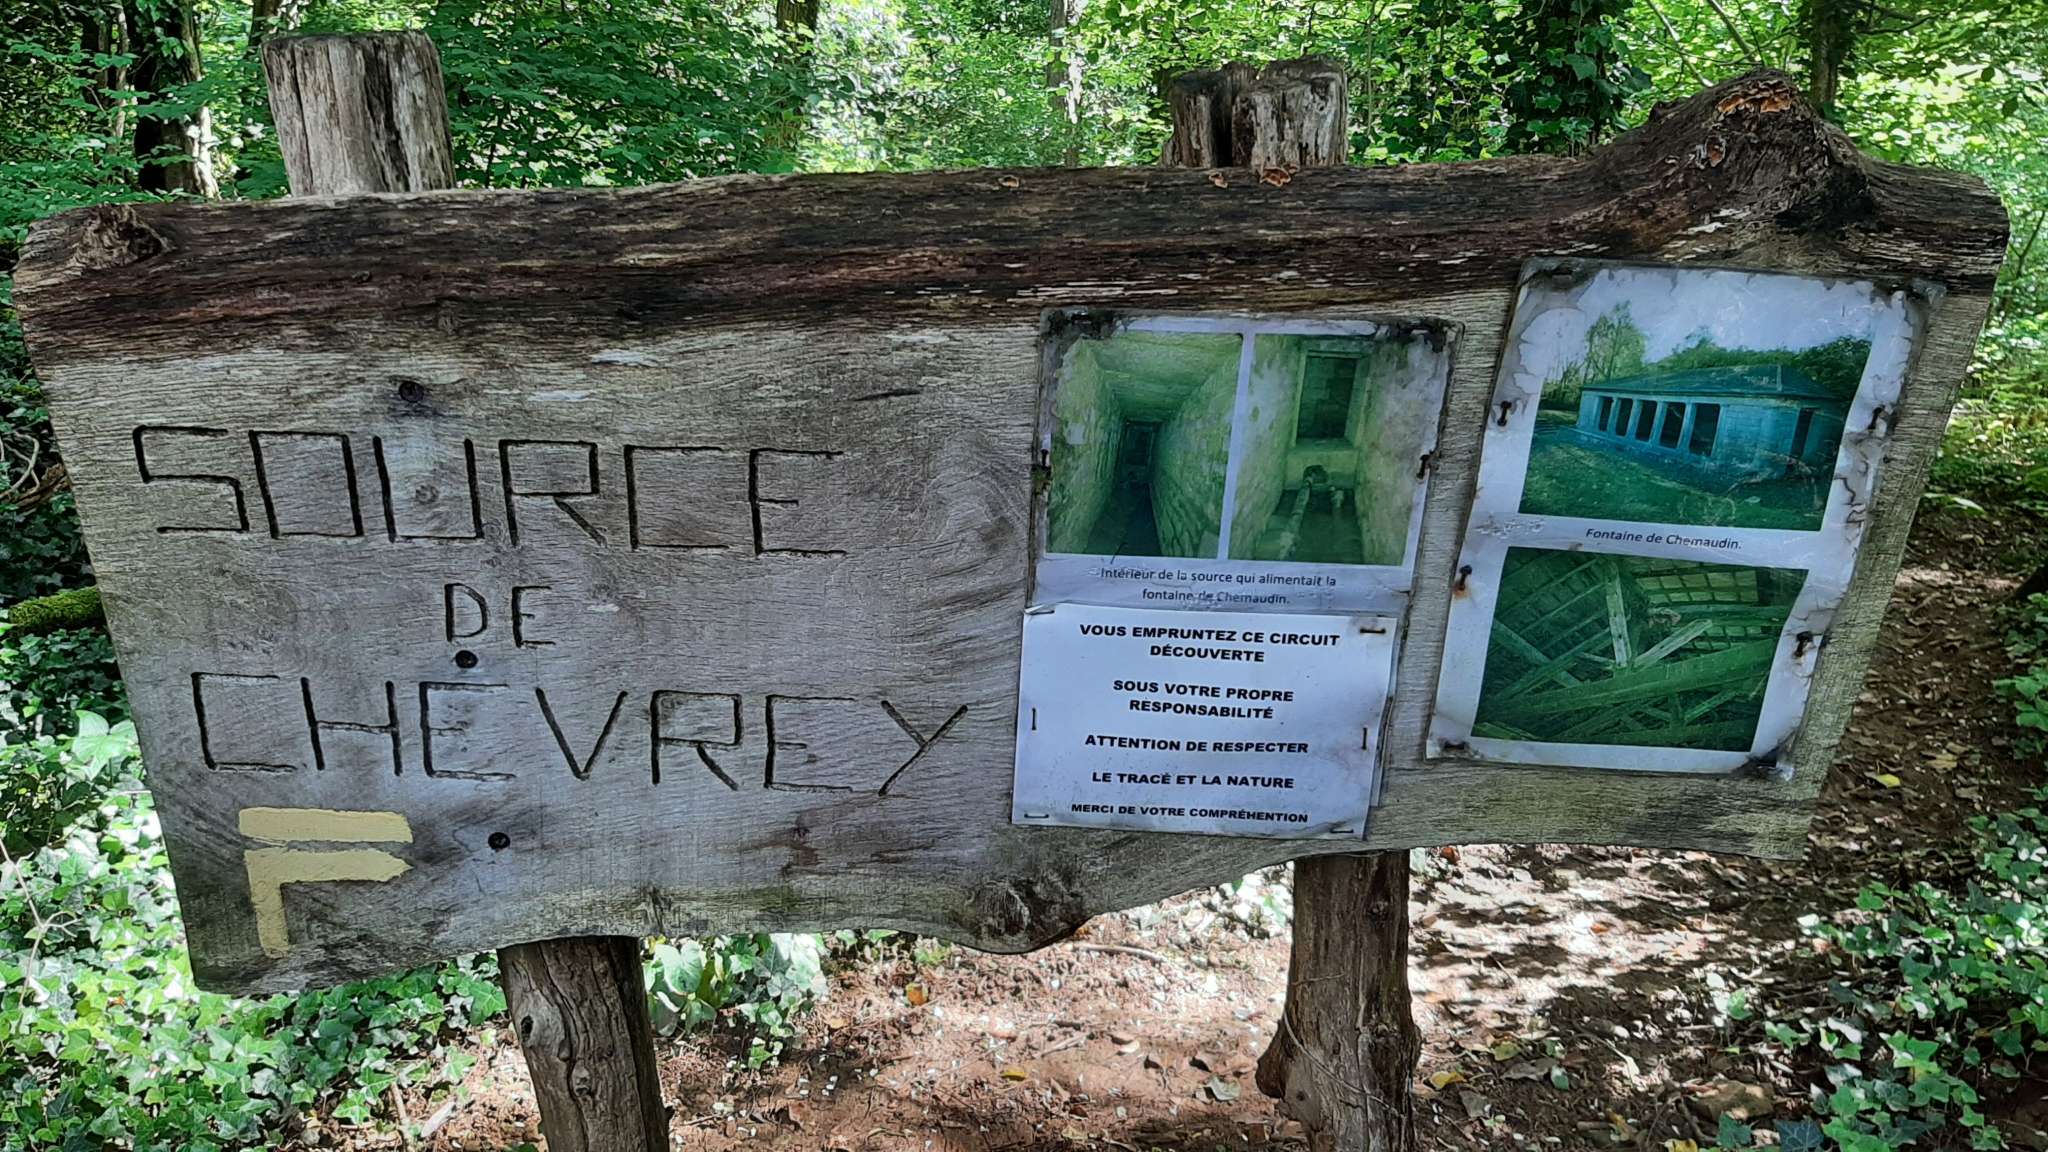 SOURCE
DE
CHEVREY
Intérieur de la source qui alimentait la
fontaine de Chemaudin.
VOUS EMPRUNTEZ CE CIRCUIT
DÉCOUVERTE
SOUS VOTRE PROPRE
RESPONSABILITÉ
ATTENTION DE RESPECTER
LE TRACÉ ET LA NATURE
MERCI DE VOTRE COMPRÉHENTION
Fontaine de Chemaudin.